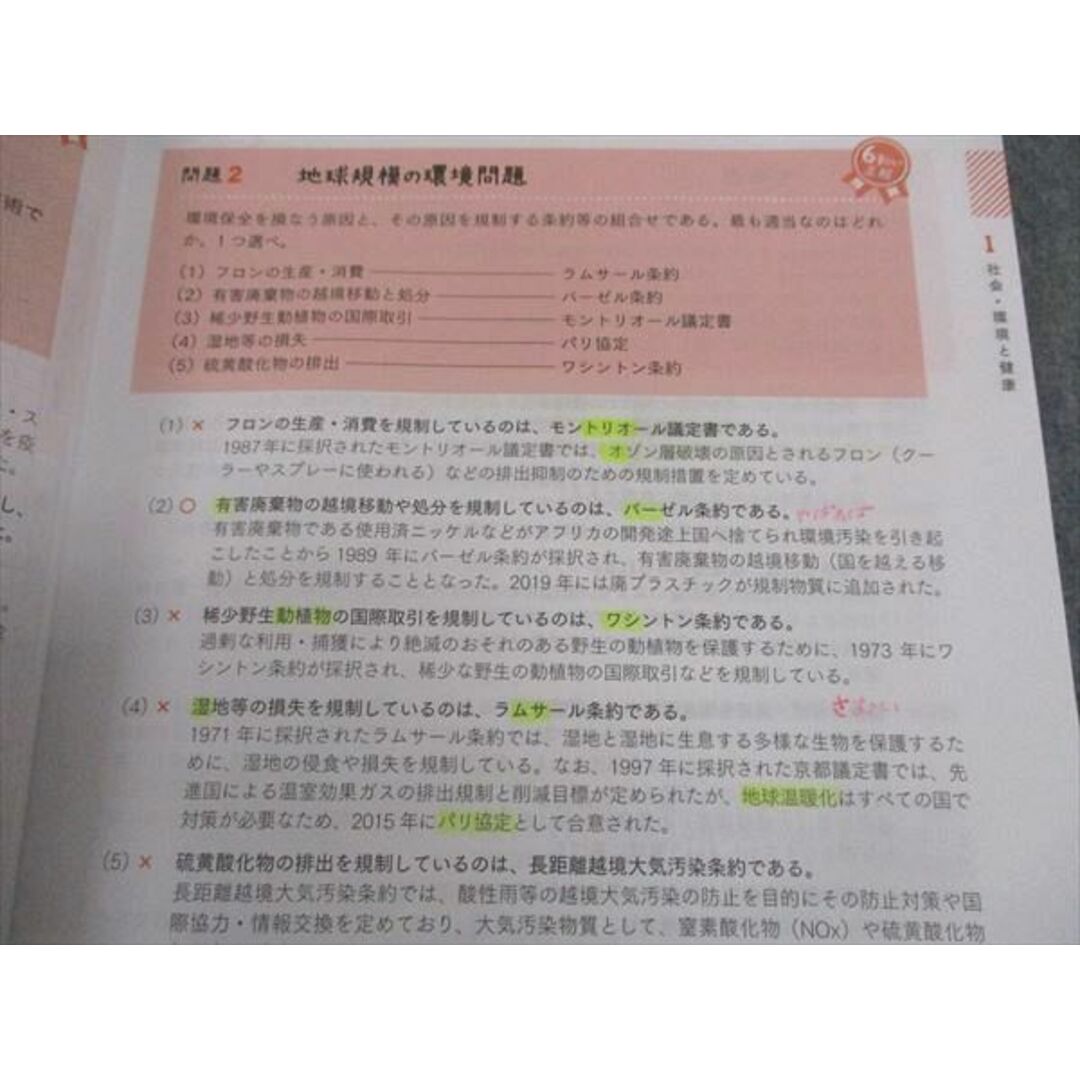 問題2 地球規模の環境問題
環境保全を損なう原因と、その原因を規制する条約等の組合せである。最も適当なのはどれ
か。1つ選べ。
(1) フロンの生産・消費 ラムサール条約
(2) 有害廃棄物の越境移動と処分 バーゼル条約
(3) 稀少野生動植物の国際取引 モントリオール議定書
(4) 湿地等の損失 パリ協定
(5) 硫黄酸化物の排出 ワシントン条約
1
社会・環境と健康
(1) × フロンの生産・消費を規制しているのは、モントリオール議定書である。
1987年に採択されたモントリオール議定書では、オゾン層破壊の原因とされるフロン（クー
ラーやスプレーに使われる）などの排出抑制のための規制措置を定めている。
(2) ○ 有害廃棄物の越境移動や処分を規制しているのは、バーゼル条約である。
有害廃棄物である使用済ニッケルなどがアフリカの開発途上国へ捨てられ環境汚染を引き起
こしたことから 1989 年にバーゼル条約が採択され、有害廃棄物の越境移動（国を越える移
動）と処分を規制することとなった。2019 年には廃プラスチックが規制物質に追加された。
(3) × 稀少野生動植物の国際取引を規制しているのは、ワシントン条約である。
過剰な利用・捕獲により絶滅のおそれのある野生の動植物を保護するために、1973 年にワ
シントン条約が採択され、稀少な野生の動植物の国際取引などを規制している。
(4) × 湿地等の損失を規制しているのは、ラムサール条約である。
1971 年に採択されたラムサール条約では、湿地と湿地に生息する多様な生物を保護するた
めに、湿地の侵食や損失を規制している。なお、1997 年に採択された京都議定書では、先
進国による温室効果ガスの排出規制と削減目標が定められたが、地球温暖化はすべての国で
対策が必要なため、2015 年にパリ協定として合意された。
(5) × 硫黄酸化物の排出を規制しているのは、長距離越境大気汚染条約である。
長距離越境大気汚染条約では、酸性雨等の越境大気汚染の防止を目的にその防止対策や国
際協力・情報交換を定めており、大気汚染物質として、窒素酸化物（NOx）や硫黄酸化物